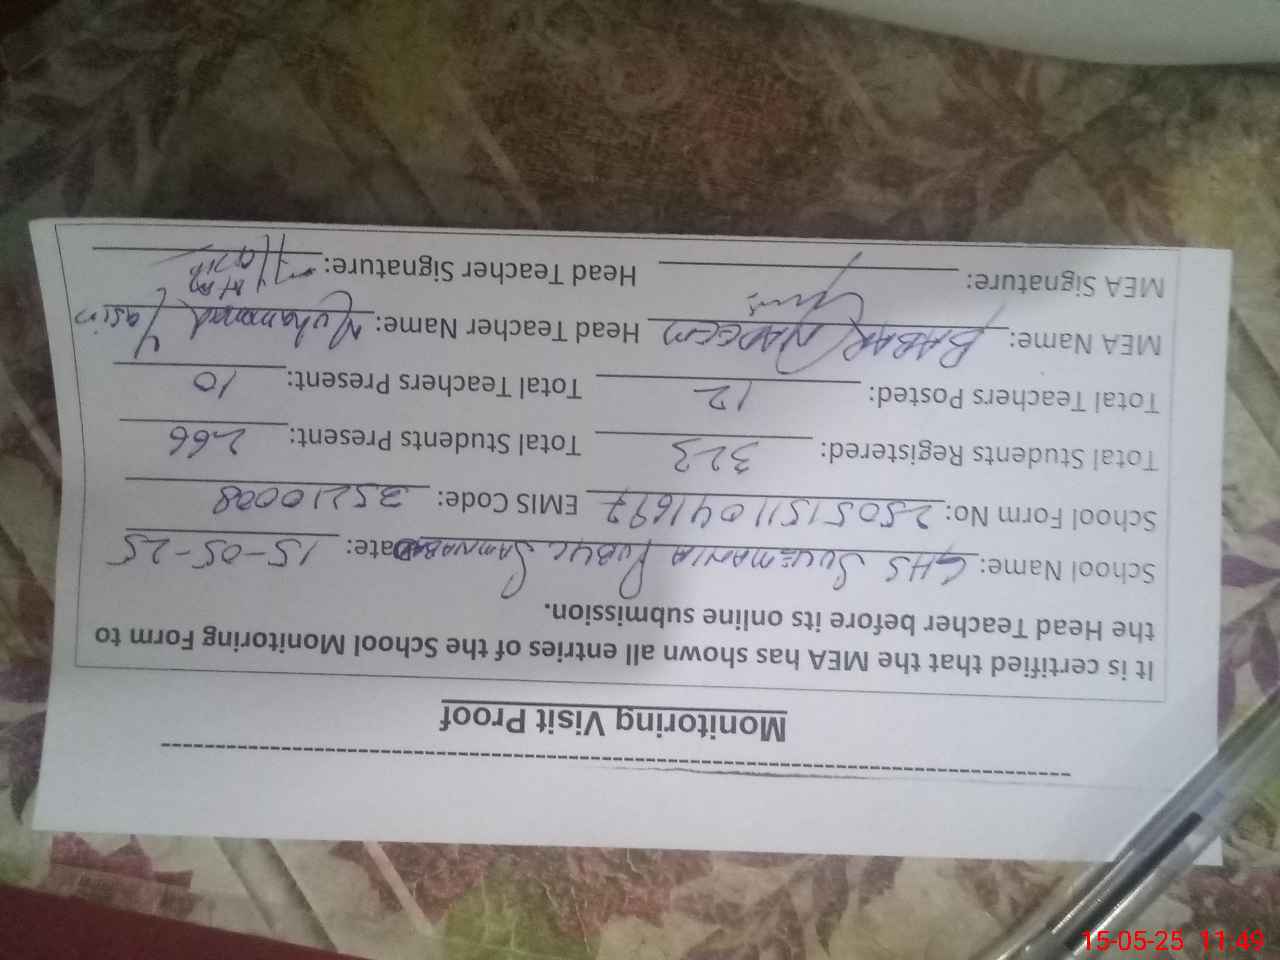 Monitoring Visit Proof
It is certified that the MEA has shown all entries of the School Monitoring Form to
the Head Teacher before its online submission.
School Name: GHS SULEMANIA PUBLIC SAMNABAD Date: 15-05-25
School Form No: 25051511041697 EMIS Code: 35210008
Total Students Registered: 323 Total Students Present: 266
Total Teachers Posted: 12 Total Teachers Present: 10
MEA Name: BABAR NADEEM Head Teacher Name: Muhammad Yasin
MEA Signature: Head Teacher Signature:
15-05-25 11:49